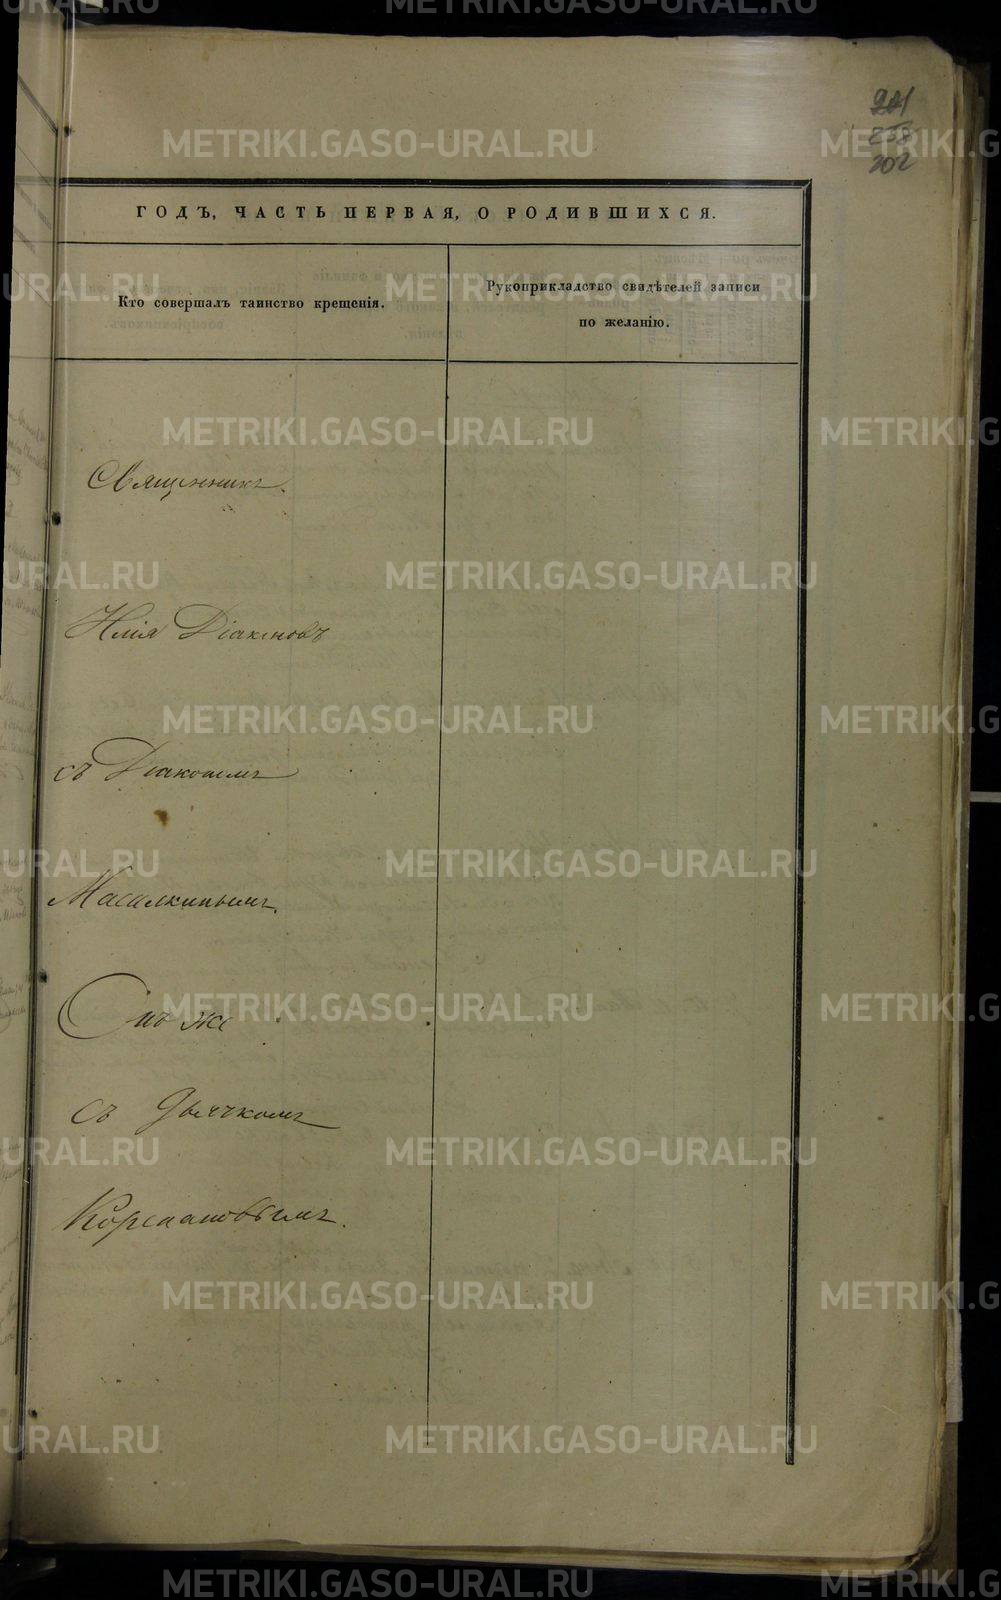 201
238
202
ГОДЪ, ЧАСТЬ ПЕРВАЯ, О РОДИВШИХСЯ.
Кто совершалъ таинство крещенія.
Рукоприкладство свидѣтелей записи
по желанію.
Священникъ.
Илія Діаконовъ
съ Діакономъ
Масалкинымъ.
Онъ же
съ Дьячкомъ
METRIKI.GASO-URAL.RU